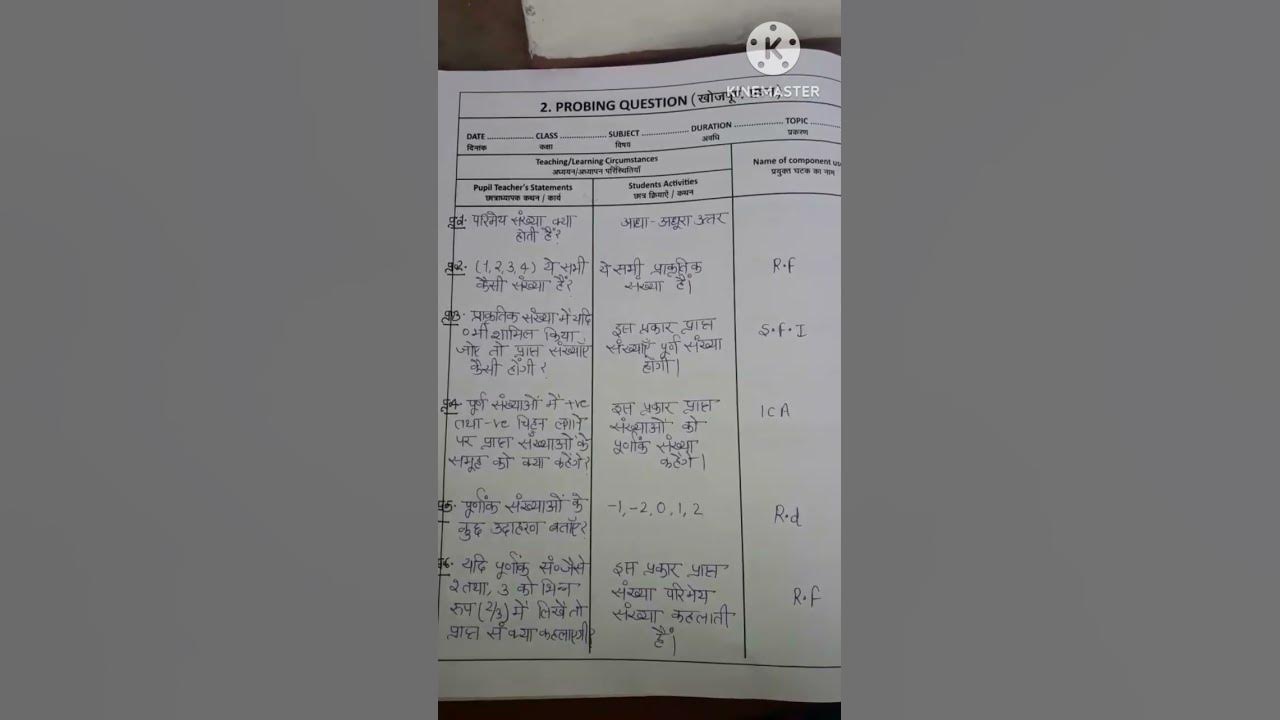 KINEMASTER
2. PROBING QUESTION (खोजपूर्ण
DATE .................. CLASS .................. SUBJECT .................. DURATION .................. TOPIC ..........
दिनांक कक्षा विषय अवधि प्रकरण
Teaching/Learning Circumstances
अध्ययन/अध्यापन परिस्थितियाँ
Name of component us
प्रयुक्त घटक का नाम
Pupil Teacher's Statements
छात्राध्यापक कथन / कार्य
Students Activities
छात्र क्रियाऐं / कथन
प्र1. परिमेय संख्या क्या
होती हैं?
आधा-अधूरा उत्तर
प्र2. (1, 2, 3, 4) ये सभी
कैसी संख्या हैं?
ये सभी प्राकृतिक
संख्या हैं।
R.f
प्र3. प्राकृतिक संख्या में यदि
० भी शामिल किया
जाए तो प्राप्त संख्याएँ
कैसी होंगी?
इस प्रकार प्राप्त
संख्याएँ पूर्ण संख्या
होंगी।
S.f.I
प्र4. पूर्ण संख्याओं में +ve
तथा -ve चिह्न लगाने
पर प्राप्त संख्याओं के
समूह को क्या कहेंगे?
इस प्रकार प्राप्त
संख्याओं को
पूर्णांक संख्या
कहेंगे।
ICA
प्र5. पूर्णांक संख्याओं के
कुछ उदाहरण बताएँ?
-1, -2, 0, 1, 2
R.d
प्र6. यदि पूर्णांक सं० जैसे
2 तथा, 3 को भिन्न
रूप (2/3) में लिखें तो
प्राप्त सं क्या कहलाएगी?
इस प्रकार प्राप्त
संख्या परिमेय
संख्या कहलाती
हैं।
R.f